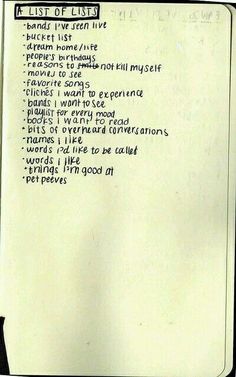 A LIST OF LISTS
· bands i've seen live
· bucket list
· dream home/life
· people's birthdays
· reasons to not kill myself
· movies to see
· favorite songs
· clichés i want to experience
· bands i want to see
· playlist for every mood
· books i want to read
· bits of overheard conversations
· names i like
· words i'd like to be called
· words i like
· things i'm good at
· pet peeves